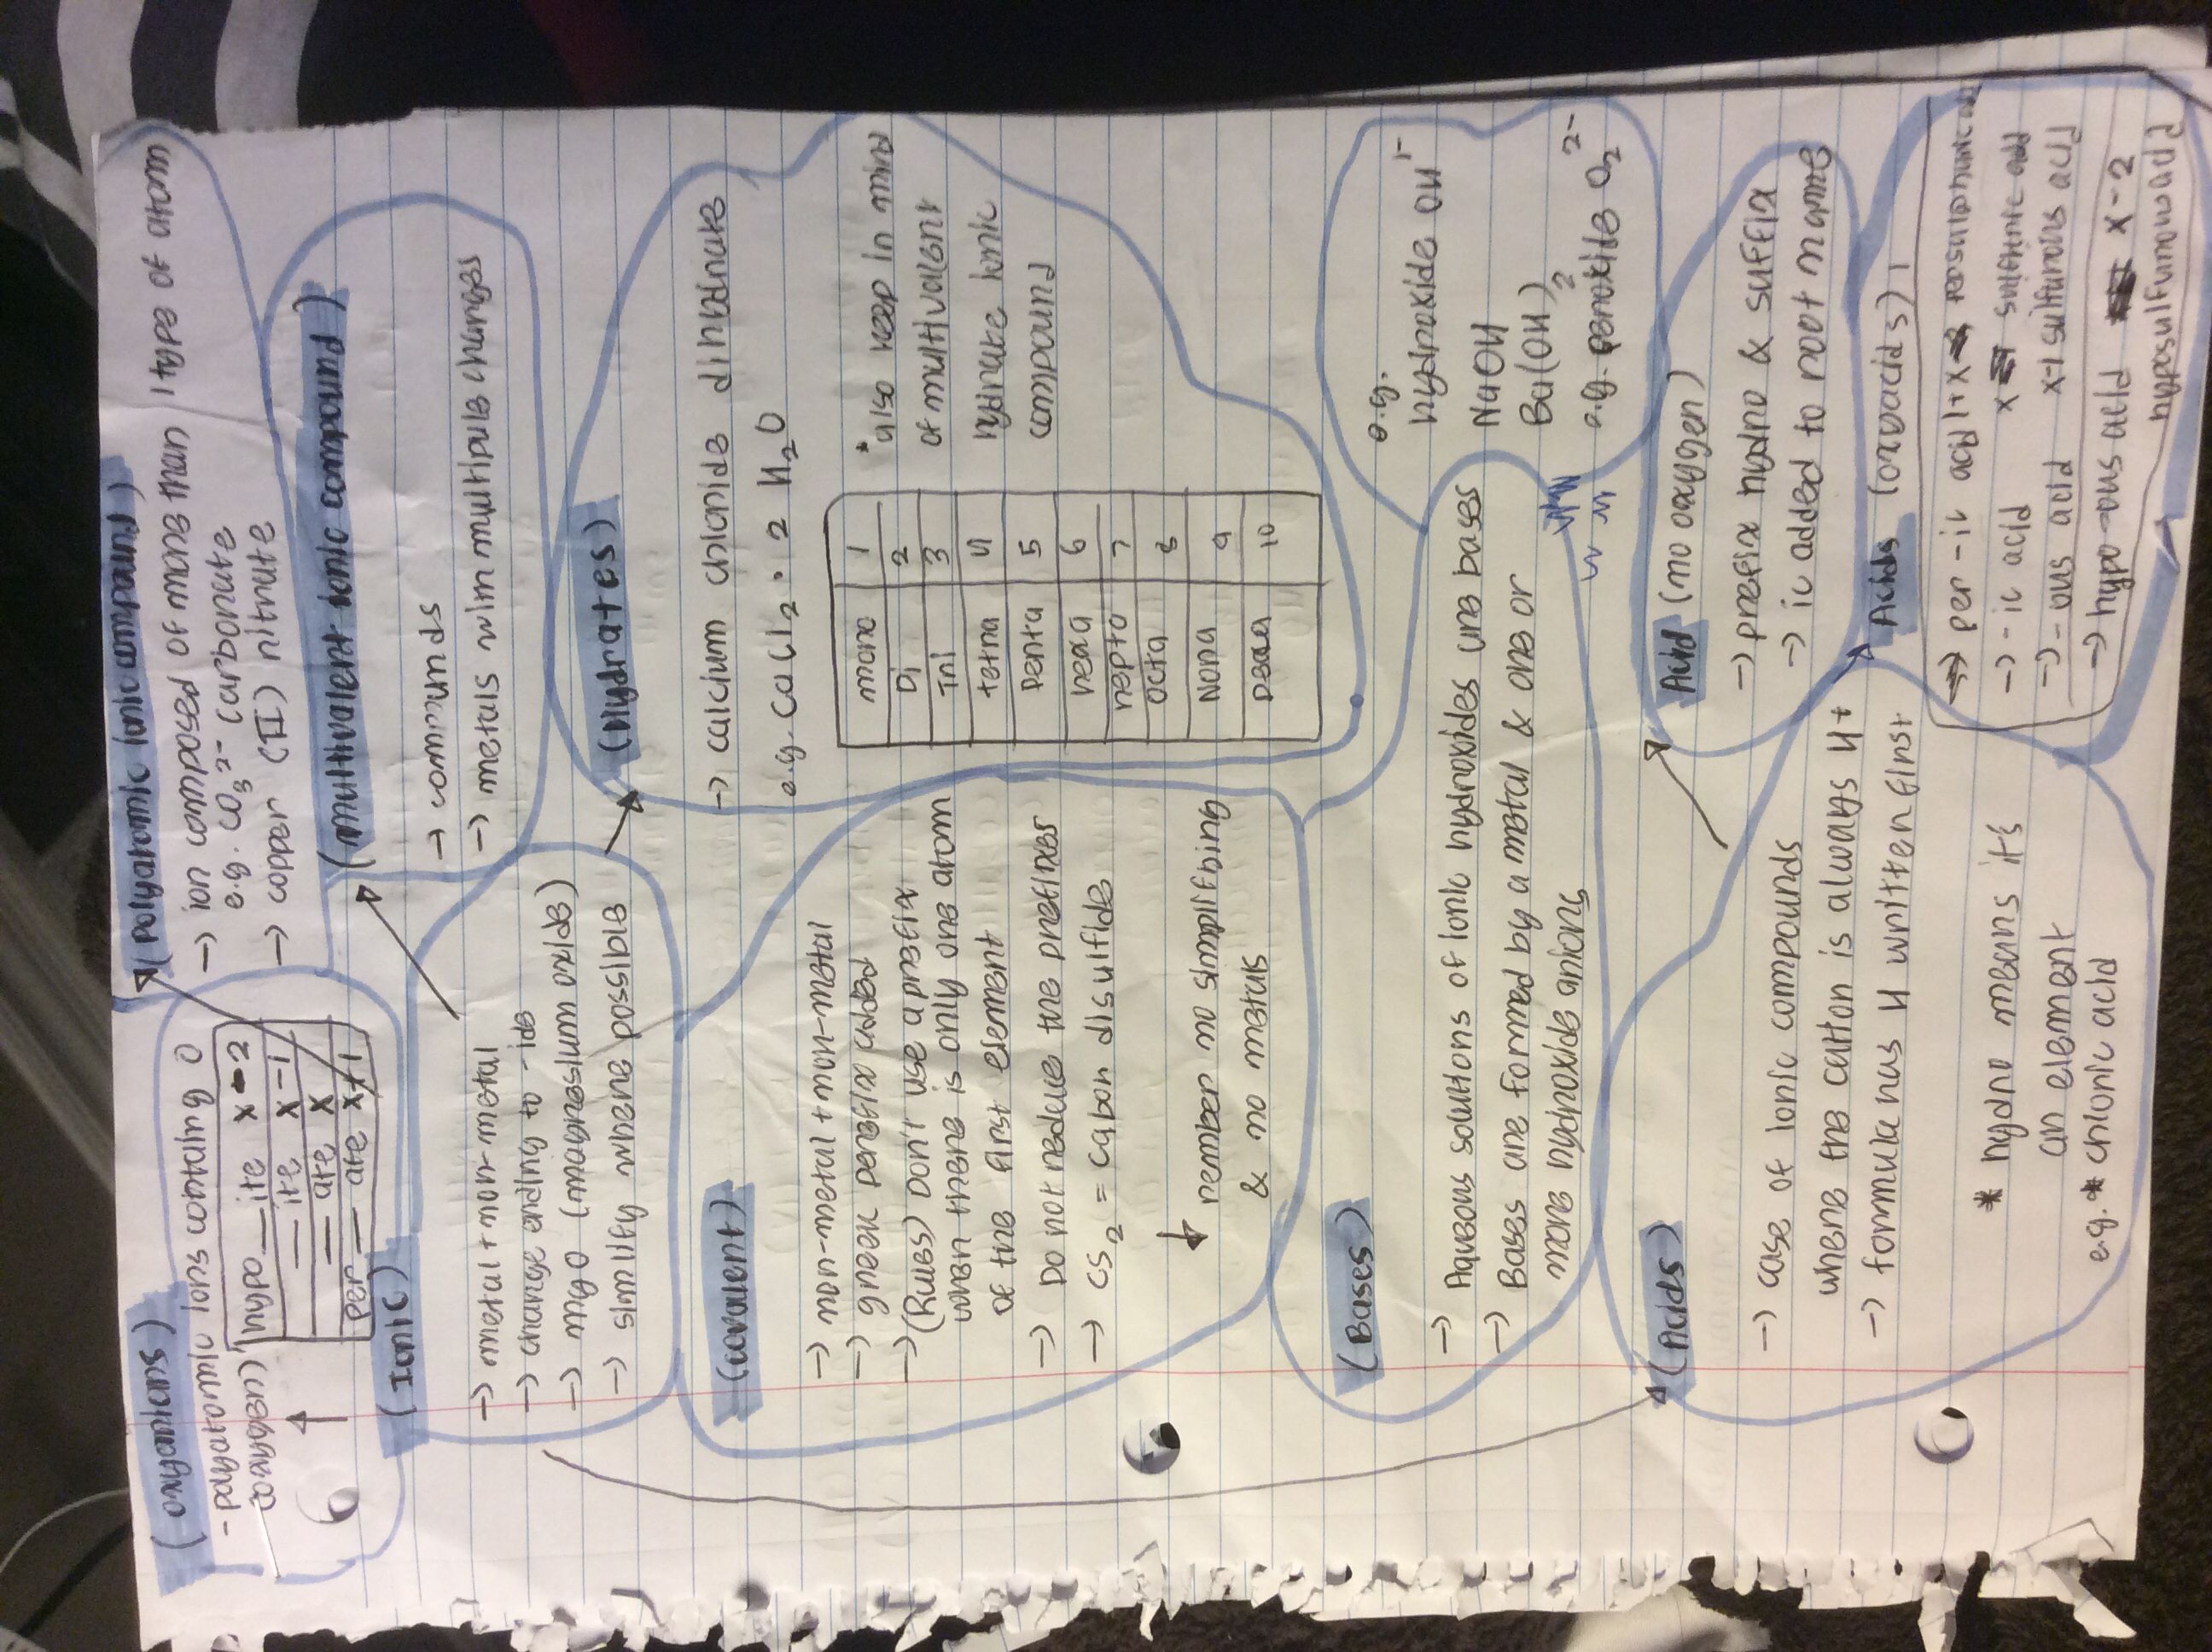 (oxyanions)
- polyatomic ions containing O
(oxygen)
hypo __ ite x-2
__ ite x-1
__ ate x
per __ ate x+1
(polyatomic ionic compound)
→ ion composed of more than 1 type of atom
e.g. CO₃²⁻ carbonate
→ copper (II) nitrate
(Ionic)
→ metal + non-metal
→ change ending to -ide
→ mgO (magnesium oxide)
→ simlify where possible
(multivalent ionic compound)
→ compounds
→ metals with multiple charges
(Hydrates)
→ calcium chloride dihydrate
e.g. CaCl₂ · 2 H₂O
mono 1
Di 2
Tri 3
tetra 4
Penta 5
hexa 6
hepta 7
octa 8
Nona 9
Deca 10
*also keep in mind
of multivalent
hydrate ionic
compound
(covalent)
→ non-metal + non-metal
→ greek prefix added
→ (Rules) Don't use a prefix
when there is only one atom
of the first element
→ Do not reduce the prefixes
→ CS₂ = carbon disulfide
↓
remember no simplifying
& no metals
(Bases)
→ Aqueous solutions of ionic hydroxides are bases
→ Bases are formed by a metal & one or
more hydroxide anions
e.g.
hydroxide OH¹⁻
NaOH
Ba(OH)₂
e.g. peroxide O₂²⁻
(Acids)
→ case of ionic compounds
where the cation is always H+
→ formula has H written first
* hydro means it's
an element
e.g. * chloric acid
Acid (no oxygen)
→ prefix hydro & suffix
→ ic added to root name
Acids (oxoacids)
→ per -ic acid 1+x
→ - ic acid x
→ - ous acid x-1 sulfurous acid
→ hypo-ous acid x-2
hyposulfurous acid